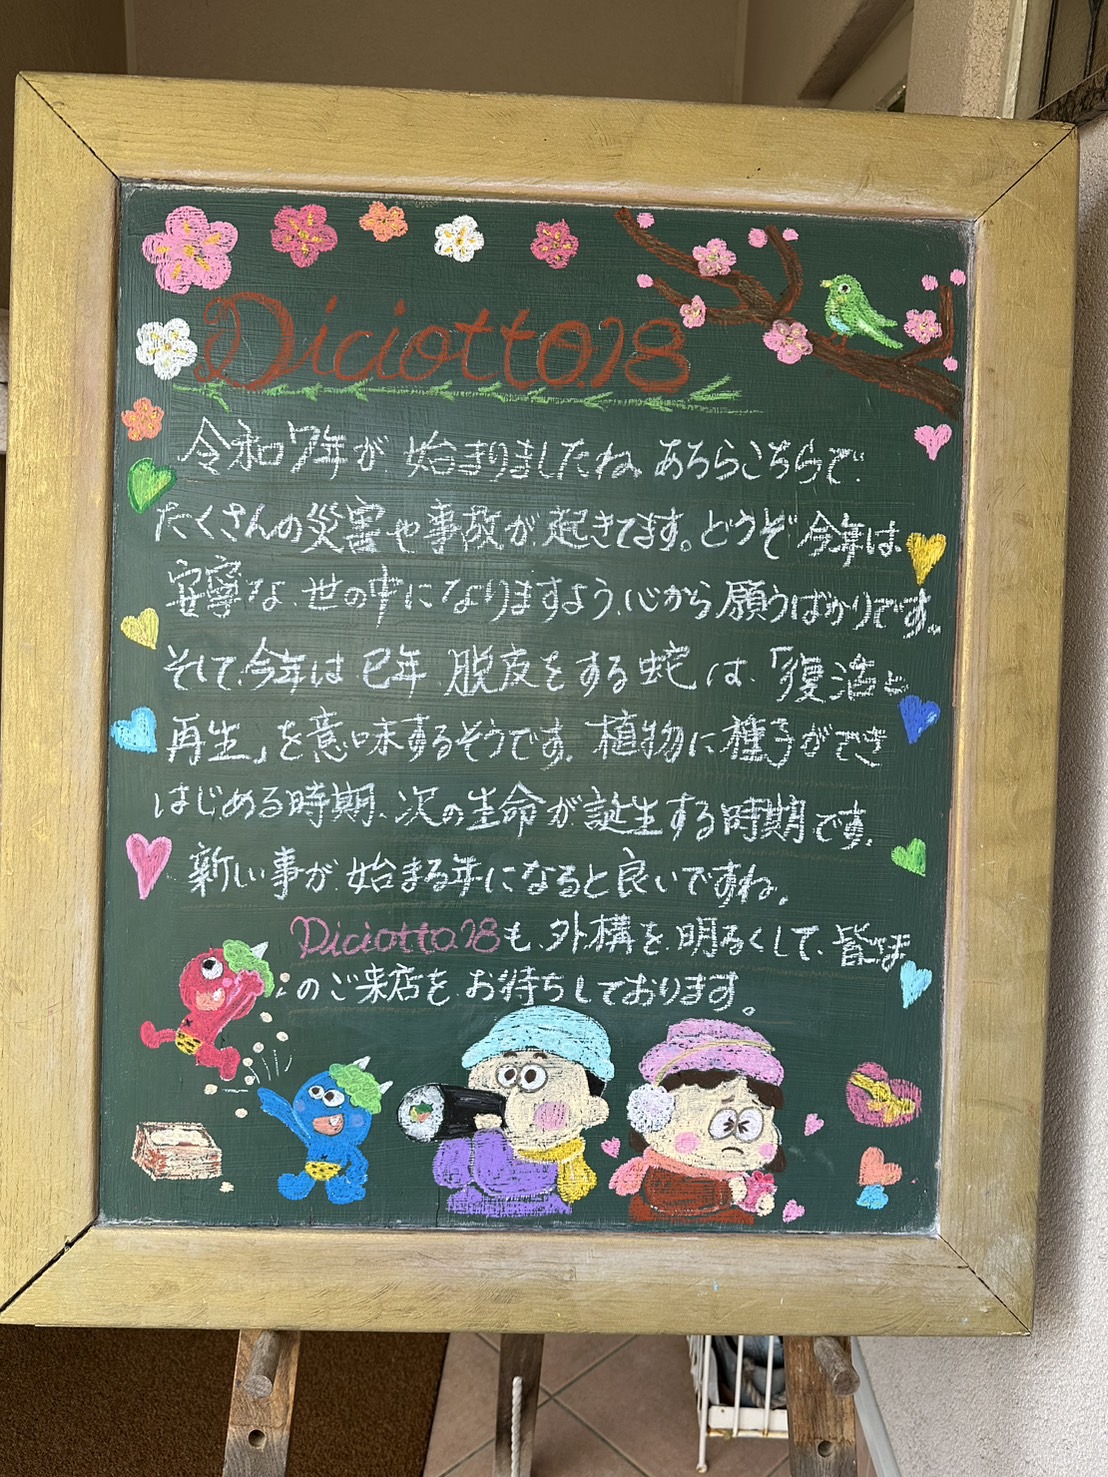 Diciotto.18
令和7年が、始まりましたね。あちらこちらで、
たくさんの災害や事故が、起きてます。どうぞ今年は、
安寧な、世の中になりますよう、心から願うばかりです。
そして、今年は巳年、脱皮をする蛇は、「復活と
再生」を意味するそうです。植物に種子ができ
はじめる時期、次の生命が誕生する時期です。
新しい事が、始まる年になると良いですね。
Diciotto.18も、外構を、明るくして、皆さま
のご来店を、お待ちしております。